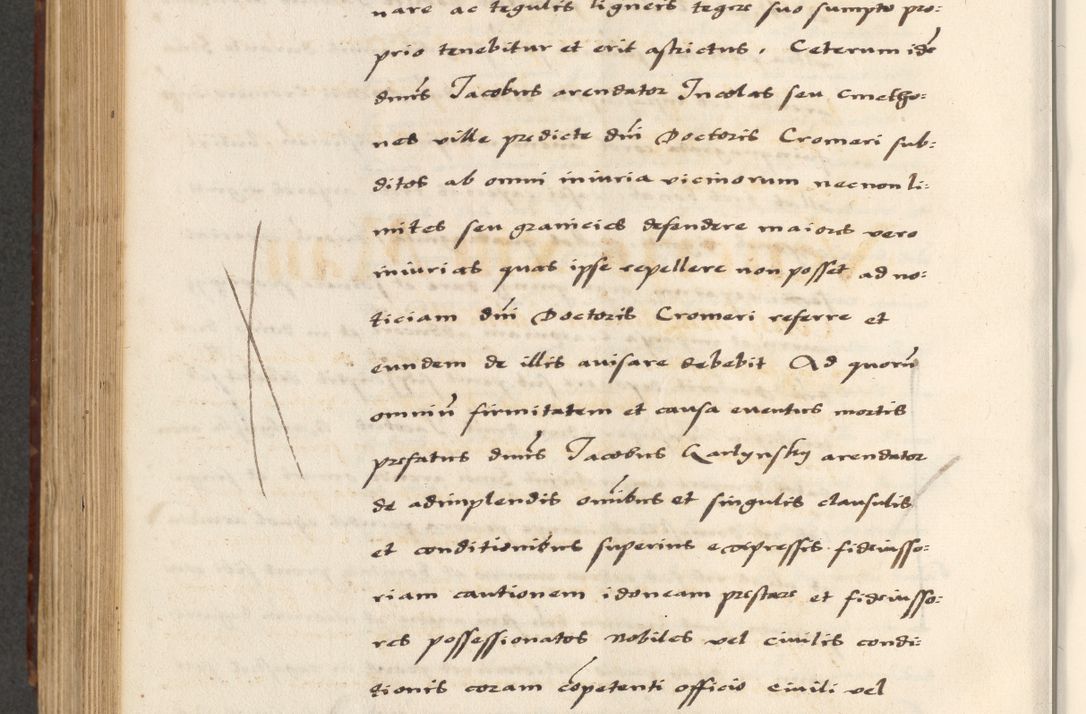 nare ac tegulis ligneis tegere suo sumpto pro:
prio tenebitur et erit astrictus. Ceterum idē
dnūs Jacobus arendator Incolas seu cmetho:
nes ville predicte dnī Doctoris Cromeri sub:
ditos ab omni iniuria vicinorum necnon li:
mites seu granicies defendere maiores vero
iniurias quas ipse repellere non posset ad no:
ticiam dnī Doctoris Cromeri referre et
eundem de illis auisare debebit Ad quorū
omniū firmitatem et causa euentus mortis
prefatus dnūs Jacobus arendator
de adimplendis omībus et singulis clausulis
et conditionibus superius expressis fideiusso:
riam cautionem idoneam prestare et fideiusso:
res possessionatos nobiles vel ciuilis condi:
tionis coram cōpetenti officio ciuili vel